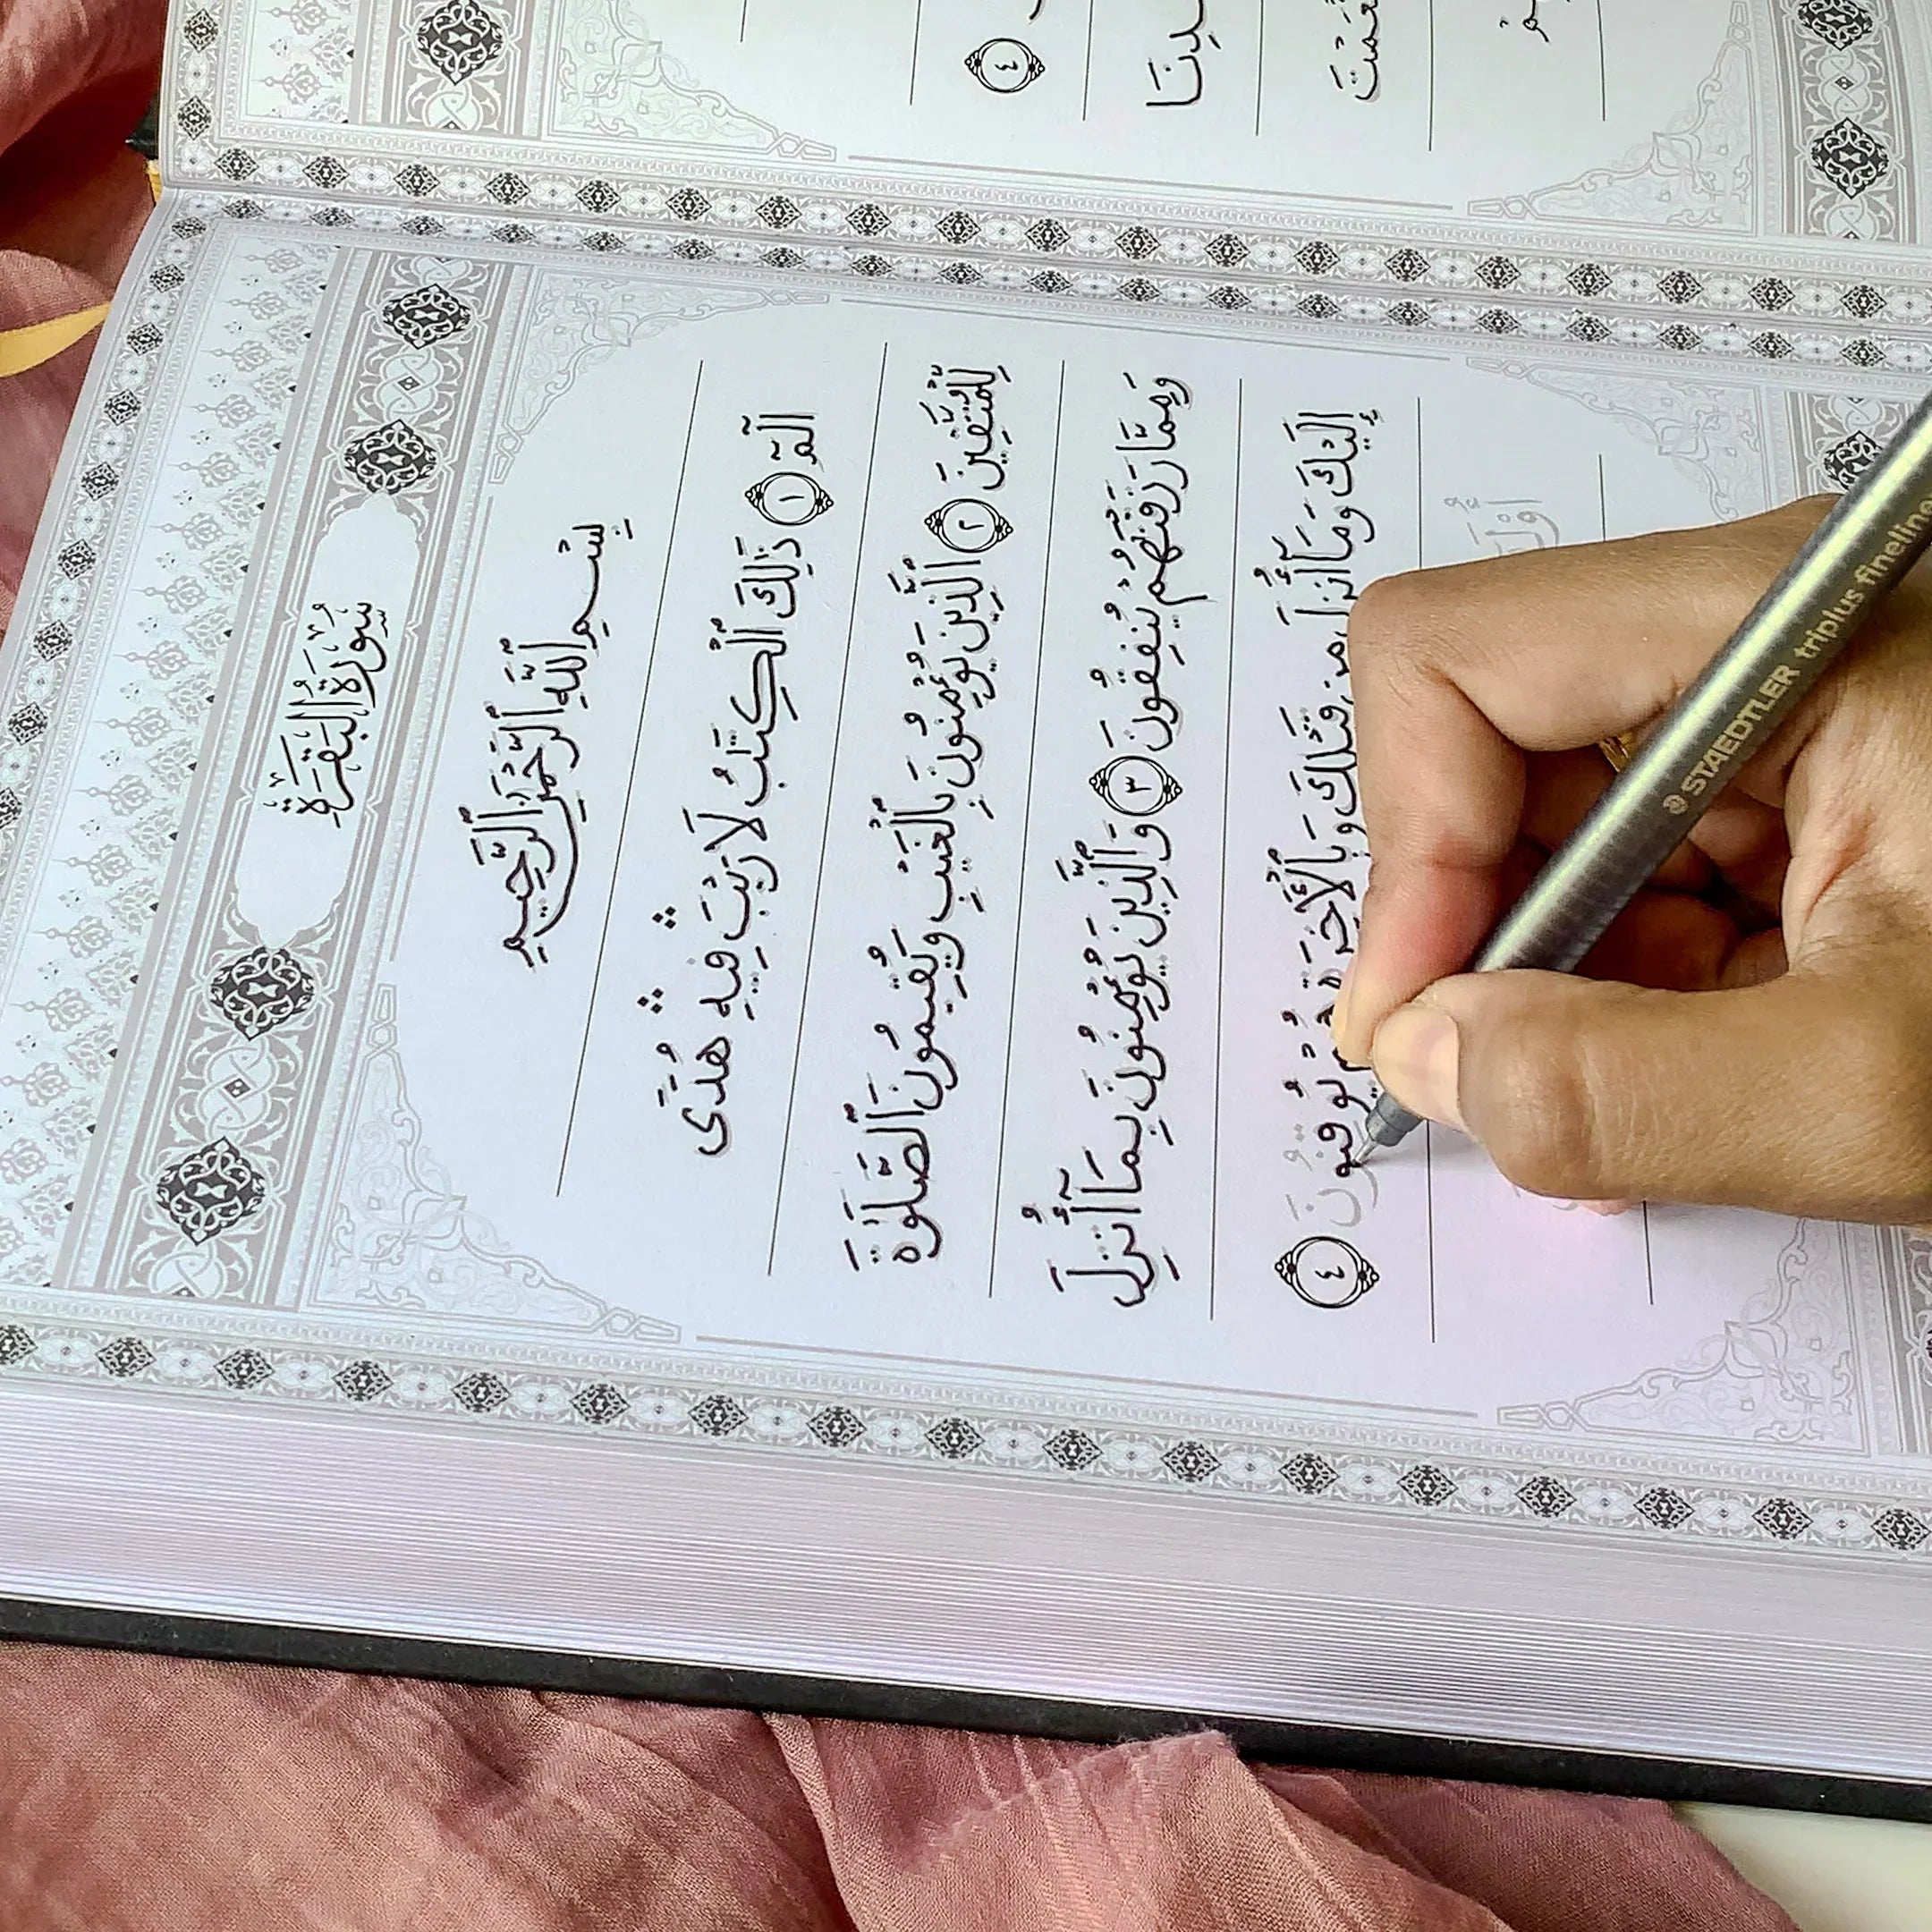 سُورَةُ البَقَرَةِ
بِسْمِ ٱللَّهِ ٱلرَّحْمَٰنِ ٱلرَّحِيمِ
الٓمٓ ١ ذَٰلِكَ ٱلْكِتَٰبُ لَا رَيْبَ ۛ فِيهِ ۛ هُدًى
لِّلْمُتَّقِينَ ٢ ٱلَّذِينَ يُؤْمِنُونَ بِٱلْغَيْبِ وَيُقِيمُونَ ٱلصَّلَوٰةَ
وَمِمَّا رَزَقْنَٰهُمْ يُنفِقُونَ ٣ وَٱلَّذِينَ يُؤْمِنُونَ بِمَآ أُنزِلَ
إِلَيْكَ وَمَآ أُنزِلَ مِن قَبْلِكَ وَبِٱلْأَخِرَةِ هُمْ يُوقِنُونَ ٤
٤
STAEDTLER triplus fineliner